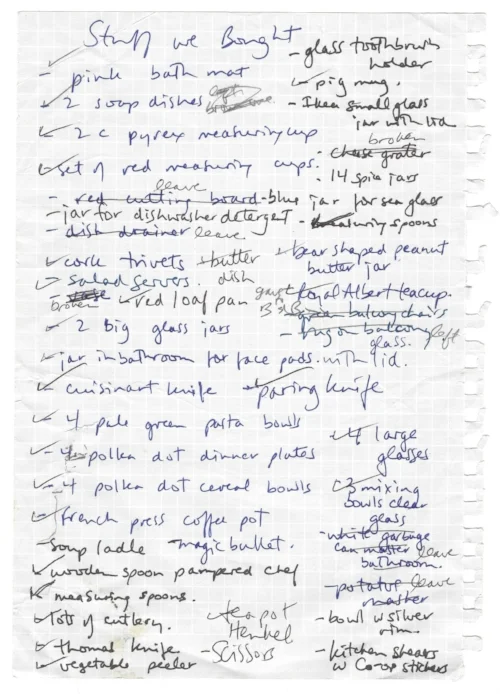 Stuff we Bought
- pink bath mat
- 2 soap dishes
- 2 c pyrex measuring cup
- set of red measuring cups.
leave
- red cutting board - blue jar for sea glass
- jar for dishwasher detergent
- dish drainer leave
- cork trivets - butter dish
- salad servers.
broken
- red loaf pan
- 2 Big glass jars
- jar in bathroom for face pads. with lid.
- cuisinart knife - paring knife
- 4 pale green pasta bowls
- 4 polka dot dinner plates
- 4 polka dot cereal bowls
- french press coffee pot
- soup ladle - magic bullet.
- wooden spoon pampered chef
- measuring spoons.
- lots of cutlery.
- thomas knife
- vegetable peeler
- teapot
Henkel
- Scissors
- glass toothbrush
holder
- pig mug.
- Ikea small glass
jar with lid
broken
- cheese grater
- 14 spice jars
- measuring spoons
- bear shaped peanut
butter jar
- Royal Albert teacup.
- green balcony chairs
- rug on balcony left
glass.
- 4 large
glasses
- 3 mixing
bowls clear
glass
- white garbage
can master leave
bathroom.
- potatoe leave
masher
- bowl w silver
rim.
- kitchen shears
w Co-op stickers